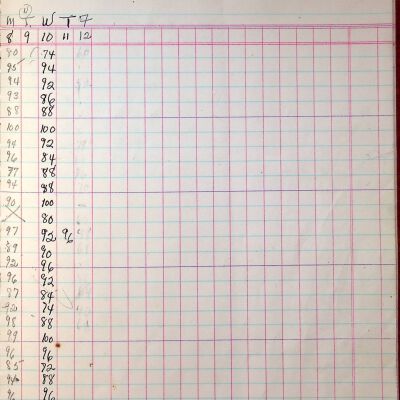 M T W T F
8 9 10 11 12
80 74
95 94
94 92
93 86
88 88
100 100
94 92
96 84
77 88
94 88
90 100
80
97 92 96
89 90
92 96
96 92
87 84
92 74
98 88
99 100
96 96
85 72
94 88
96 96